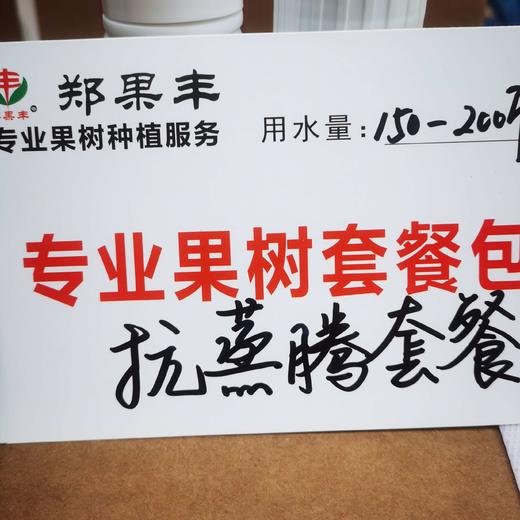 郑果丰
专业果树种植服务
用水量:150-200
专业果树套餐包
抗蒸腾套餐